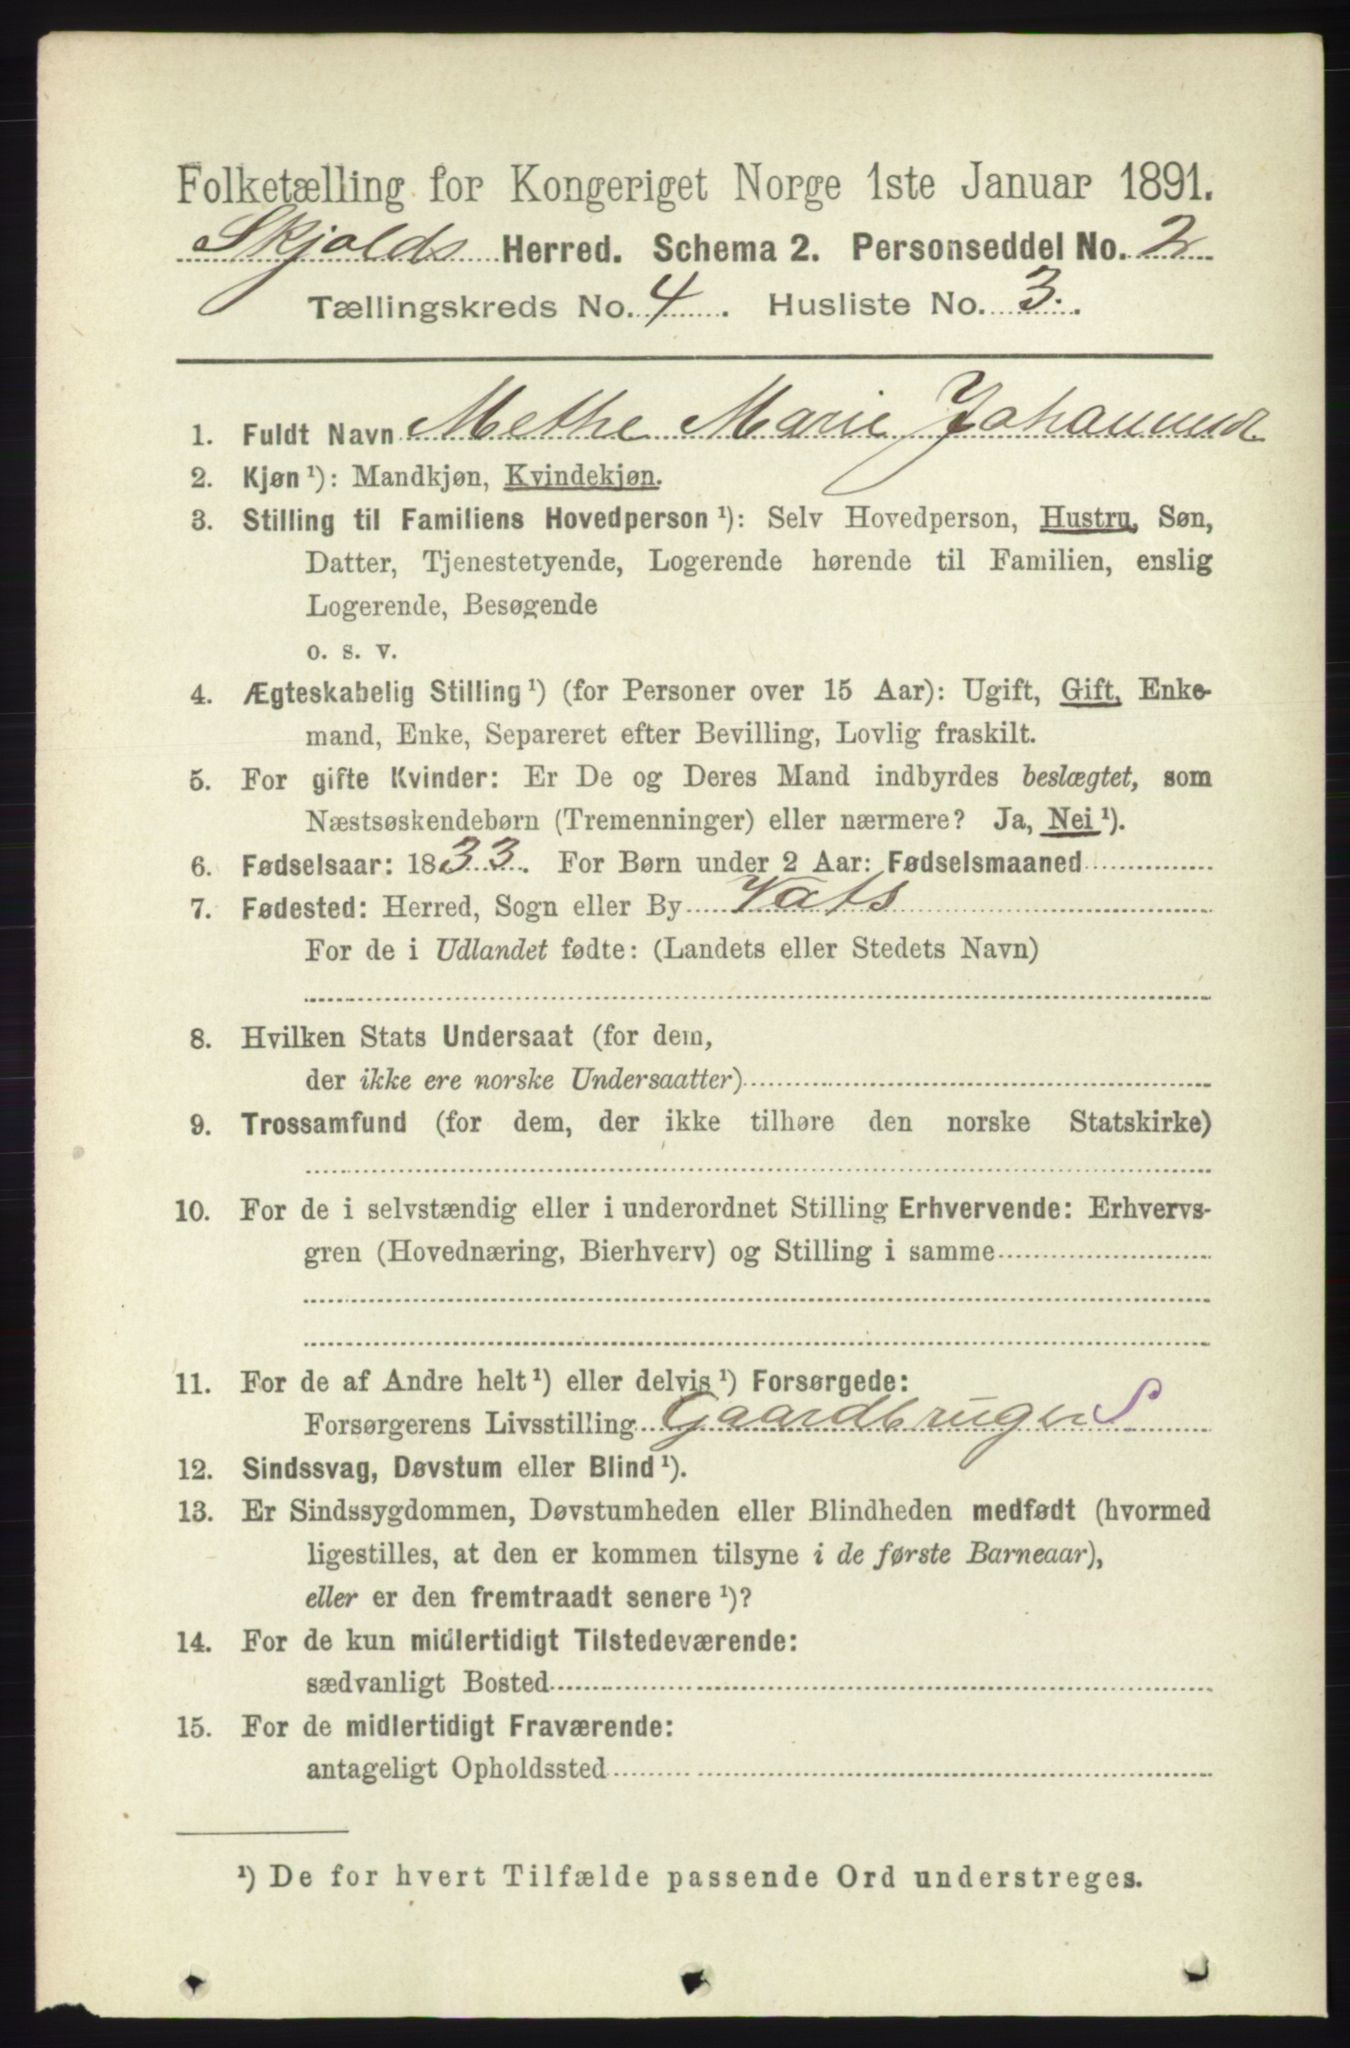 Folketælling for Kongeriget Norge 1ste Januar 1891.
Skjolds Herred. Schema 2. Personseddel No. 2
Tællingskreds No. 4. Husliste No. 3.
1. Fuldt Navn Methe Marie
2. Kjøn ¹): Mandkjøn, Kvindekjøn.
3. Stilling til Familiens Hovedperson ¹): Selv Hovedperson, Hustru, Søn,
Datter, Tjenestetyende, Logerende hørende til Familien, enslig
Logerende, Besøgende
o. s. v.
4. Ægteskabelig Stilling ¹) (for Personer over 15 Aar): Ugift, Gift, Enke-
mand, Enke, Separeret efter Bevilling, Lovlig fraskilt.
5. For gifte Kvinder: Er De og Deres Mand indbyrdes beslægtet, som
Næstsøskendebørn (Tremenninger) eller nærmere? Ja, Nei ¹).
6. Fødselsaar: 1833. For Børn under 2 Aar: Fødselsmaaned
7. Fødested: Herred, Sogn eller By Vats
For de i Udlandet fødte: (Landets eller Stedets Navn)
8. Hvilken Stats Undersaat (for dem,
der ikke ere norske Undersaatter)
9. Trossamfund (for dem, der ikke tilhøre den norske Statskirke)
10. For de i selvstændig eller i underordnet Stilling Erhvervende: Erhvervs-
gren (Hovednæring, Bierhverv) og Stilling i samme
11. For de af Andre helt ¹) eller delvis ¹) Forsørgede:
Forsørgerens Livsstilling Gaardbruger S
12. Sindssvag, Døvstum eller Blind ¹).
13. Er Sindssygdommen, Døvstumheden eller Blindheden medfødt (hvormed
ligestilles, at den er kommen tilsyne i de første Barneaar),
eller er den fremtraadt senere ¹)?
14. For de kun midlertidigt Tilstedeværende:
sædvanligt Bosted
15. For de midlertidigt Fraværende:
antageligt Opholdssted
¹) De for hvert Tilfælde passende Ord understreges.